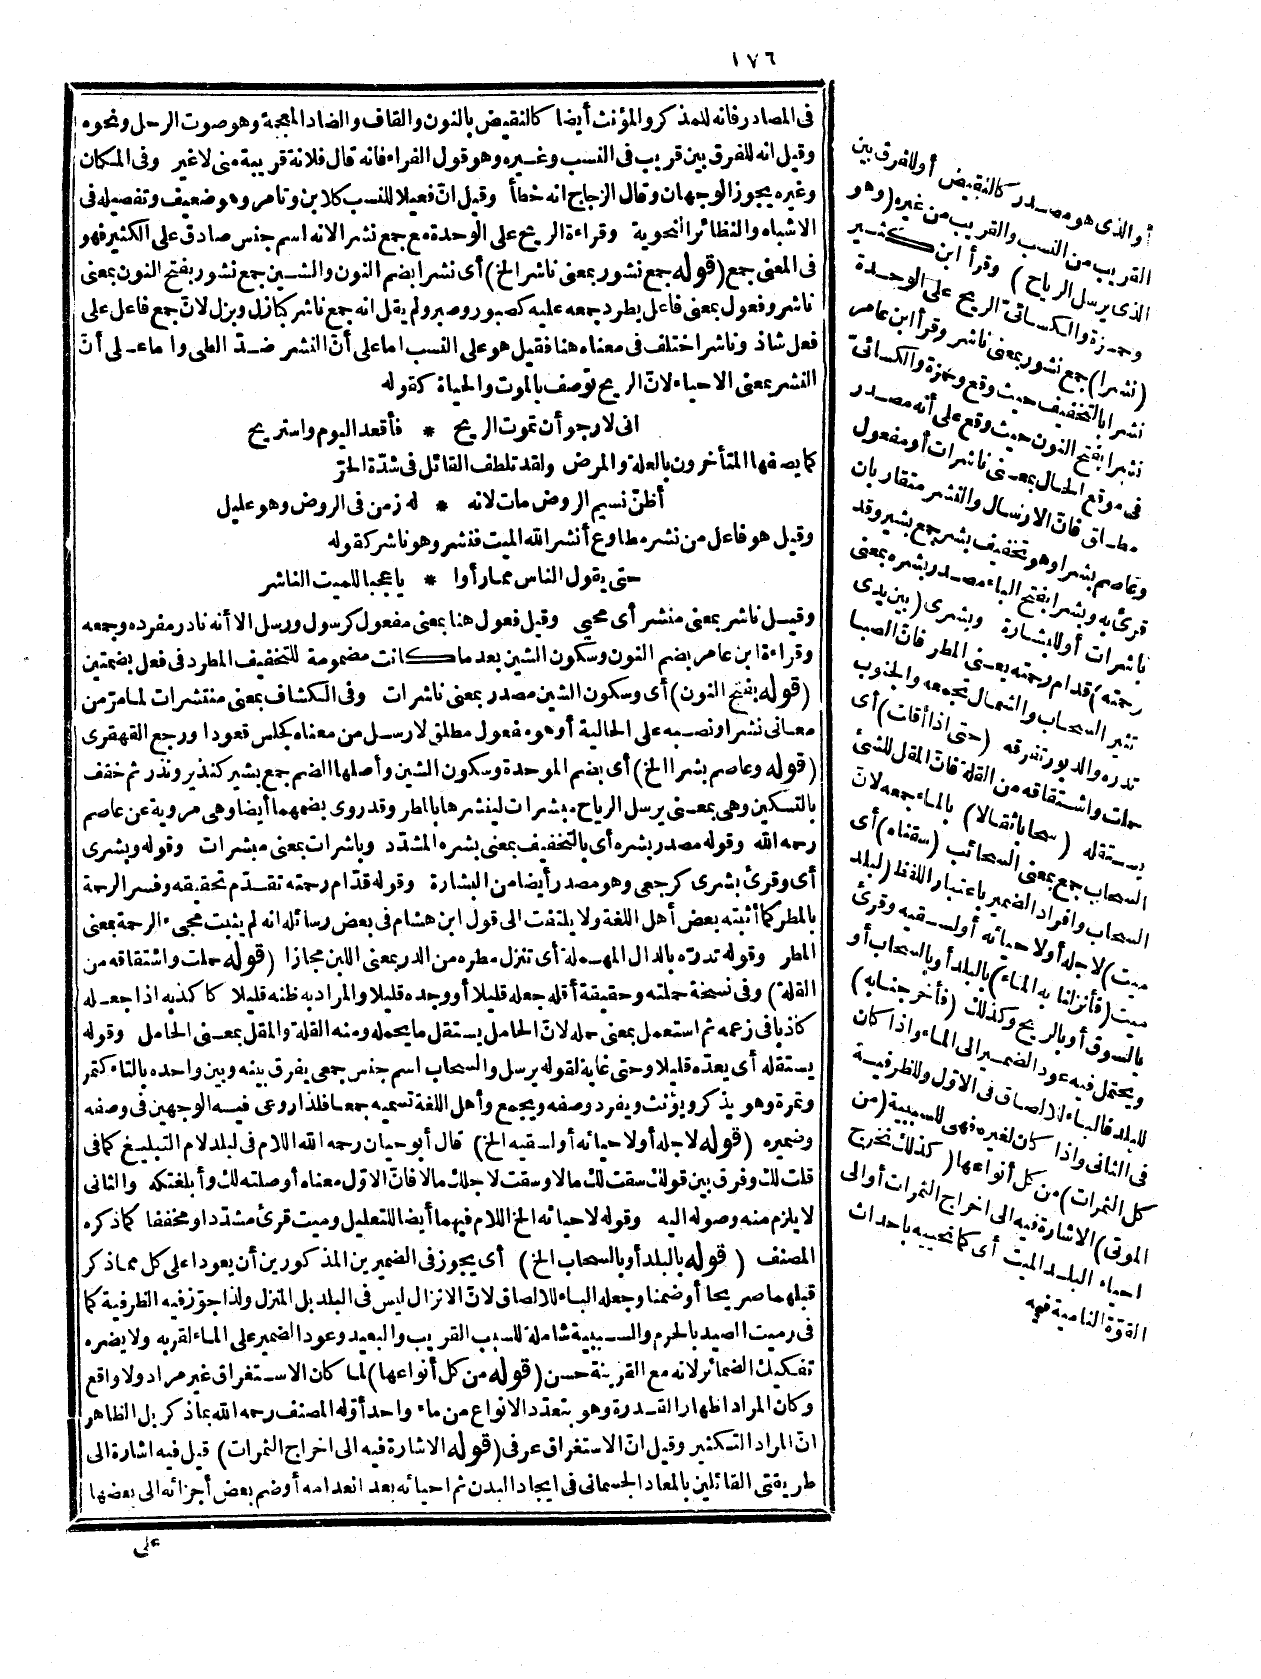 ١٧٦
فى المصادر فانه للمذكر والمؤنث أيضا كالنقيض بالنون والقاف والضاد المعجمة وهو صوت الرحل ونحوه
وقيل انه للفرق بين قريب فى النسب وغيره وهو قول الفراء فانه قال فلانة قريبة منى لاغير وفى المكان
وغيره يجوز الوجهان وقال الزجاج انه خطأ وقيل انّ فعيلا للنسب كلابن وتامر وهو ضعيف وتفصيله فى
الاشباه والنظائر النحوية وقراءة الريح على الوحدة مع جمع نشرا لانه اسم جنس صادق على الكثير فهو
فى المعنى جمع (قوله جمع نشور بمعنى ناشر الخ) أى نشرا بضم النون والشين جمع نشور بفتح النون بمعنى
ناشر وفعول بمعنى فاعل يطرد جمعه عليه كصبور وصبر ولم يقل انه جمع ناشر كبازل وبزل لانّ جمع فاعل على
فعل شاذ وناشر اختلف فى معناه هنا فقيل هو على النسب اما على أنّ النشر ضد الطى واما على أنّ
النشر بمعنى الاحياء لانّ الريح توصف بالموت والحياة كقوله
انى لارجو أن تموت الريح * فأقعد اليوم واستريح
كما يصفها المتأخرون بالعلة والمرض ولقد تلطف القائل فى شدّة الحرّ
أظنّ نسيم الروض مات لانه * له زمن فى الروض وهو عليل
وقيل هو فاعل من نشر مطاوع أنشر الله الميت فنشر وهو ناشر كقوله
حتى يقول الناس ممار أوا * ياعجبا للميت الناشر
وقيل ناشر بمعنى منشر أى محيى وقيل فعول هنا بمعنى مفعول كرسول ورسل الا أنه نادر مفرده وجمعه
وقراءة ابن عامر بضم النون وسكون الشين بعد ما كانت مضمومة للتخفيف المطرد فى فعل بضمتين
(قوله بفتح النون) أى وسكون الشين مصدر بمعنى ناشرات وفى الكشاف بمعنى منتشرات لما مرّ من
معانى نشر او نصبه على الحالية أو هو مفعول مطلق لارسل من معناه كجلس قعودا ورجع القهقرى
(قوله وعاصم بشرا الخ) أى بضم الموحدة وسكون الشين وأصلها الضم جمع بشير كنذير ونذر ثم خفف
بالتسكين وهى بمعنى يرسل الرياح مبشرات لينشرها بالمطر وقد روى بضمهما أيضا وهى مروية عن عاصم
رحمه الله وقوله مصدر بشره أى بالتخفيف بمعنى بشره المشدّد وباشرات بمعنى مبشرات وقوله وبشرى
أى وقرئ بشرى كرجعى وهو مصدر أيضا من البشارة وقوله قدّام رحمته تقدّم تحقيقه وفسر الرحمة
بالمطر كما أثبته بعض أهل اللغة ولا يلتفت الى قول ابن هشام فى بعض رسائله انه لم يثبت مجىء الرحمة بمعنى
المطر وقوله تدرّه بالدال المهملة أى تنزل مطره من الدر بمعنى اللبن مجازا (قوله حملت واشتقاقه من
القلة) وفى نسخة حملته وحقيقة أقله جعله قليلا أو وجده قليلا والمراد به ظنه قليلا كاكذبه اذا جعله
كاذبا فى زعمه ثم استعمل بمعنى حمله لانّ الحامل يستقل ما يحمله ومنه القلة والمقل بمعنى الحامل وقوله
يستقله أى يعدّه قليلا وحتى غاية لقوله يرسل والسحاب اسم جنس جمعى يفرق بينه وبين واحده بالتاء كتمر
وتمرة وهو يذكر ويؤنث ويفرد وصفه ويجمع وأهل اللغة تسميه جمعا فلذا روعى فيه الوجهين فى وصفه
وضميره (قوله لاجله أولاحيائه أو لسقيه الخ) قال أبو حيان رحمه الله اللام فى لبلد لام التبليغ كما فى
قلت لك وفرق بين قولك سقت لك مالا وسقت لاجلك مالا فانّ الاوّل معناه أوصلته لك وأبلغتكه والثانى
لا يلزم منه وصوله اليه وقوله لاحيائه الخ اللام فيهما أيضا للتعليل وميت قرئ مشدّدا ومخففا كما ذكره
المصنف (قوله بالبلد أو بالسحاب الخ) أى يجوز فى الضميرين المذكورين أن يعودا على كل مما ذكر
قبلهما صريحا أو ضمنا وجعله الباء للالصاق لانّ الانزال ليس فى البلد بل المنزل ولذا جوّز فيه الظرفية كما
فى رميت الصيد بالحرم والسببية شاملة للسبب القريب والبعيد وعود الضمير على الماء لقربه ولا يضره
تفكيك الضمائر لانه مع القرينة حسن (قوله من كل أنواعها) لما كان الاستغراق غير مراد ولا واقع
وكان المراد اظهار القدرة وهو بتعدّد الانواع من ماء واحد أوّله المصنف رحمه الله بما ذكر بل الظاهر
انّ المراد التكثير وقيل انّ الاستغراق عرفى (قوله الاشارة فيه الى اخراج الثمرات) قيل فيه اشارة الى
طريقتى القائلين بالمعاد الجسمانى فى ايجاد البدن ثم احيائه بعد انعدامه أو ضم بعض أجزائه الى بعضها
على
أو الذى هو مصدر كالنقيض أو للفرق بين
القريب من النسب والقريب من غيره (وهو
الذى يرسل الرياح) وقرأ ابن كثير
وحمزة والكسائىّ الريح على الوحدة
(نشرا) جمع نشور بمعنى ناشر وقرأ ابن عامر
نشرا بالتخفيف حيث وقع وحمزة والكسائىّ
نشرا بفتح النون حيث وقع على أنه مصدر
فى موقع الحال بمعنى ناشرات أو مفعول
مطلق فانّ الارسال والنشر متقاربان
وعاصم بشرا وهو تخفيف بشر جمع بشير وقد
قرئ به وبشرا بفتح الباء مصدر بشره بمعنى
باشرات أو للبشارة وبشرى (بين يدى
رحمته) قدام رحمته يعنى المطر فانّ الصبا
تثير السحاب والشمال تجمعه والجنوب
تدره والدبور تفرقه (حتى اذا أقلت) أى
حملت واشتقاقه من القلة فانّ المقل للشئ
يستقله (سحابا ثقالا) بالماء جمعه لانّ
السحاب جمع بمعنى السحائب (سقناه) أى
السحاب وافراد الضمير باعتبار اللفظ (لبلد
ميت) لاجله أو لاحيائه أو لسقيه وقرئ
ميت (فأنزلنا به الماء) بالبلد أو بالسحاب أو
بالسوق أو بالريح وكذلك (فأخرجنا به)
ويحتمل فيه عود الضمير الى الماء واذا كان
للبلد فالباء للالصاق فى الاوّل وللظرفية
فى الثانى واذا كان لغيره فهى للسببية (من
كل الثمرات) من كل أنواعها (كذلك نخرج
الموتى) الاشارة فيه الى اخراج الثمرات أو الى
احياء البلد الميت أى كما نحييه باحداث
القوّة النامية فيه